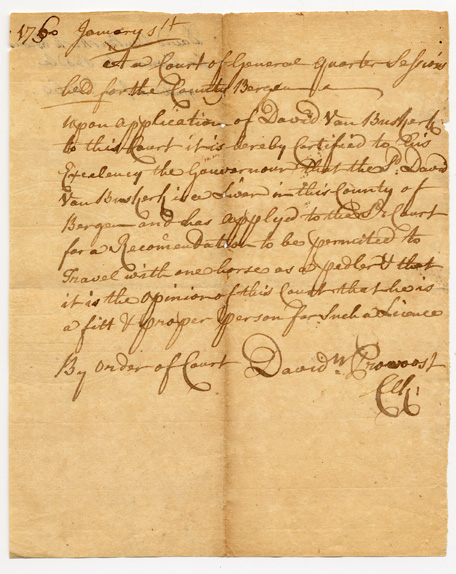 1760 January 1st
At a Court of General Quarter Sessions
held for the County Bergen
upon application of David Van Buskerk
to this Court it is hereby Certified to his
Excelency the Gouvernour that the Sd. David
Van Buskerk is a Liver in this County of
Bergen and has applyd to the Sd Court
for a Recomendation to be permitted to
Travel with one horse as a pedler & that
it is the opinion of this Court that he is
a fitt & proper person for Such a Licence
By order of Court David Provoost
Clk